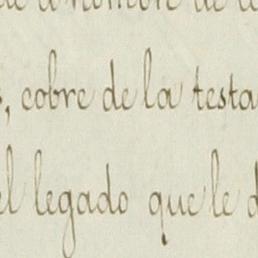 de a nombre de
, cobre de la testa
el legado que le d